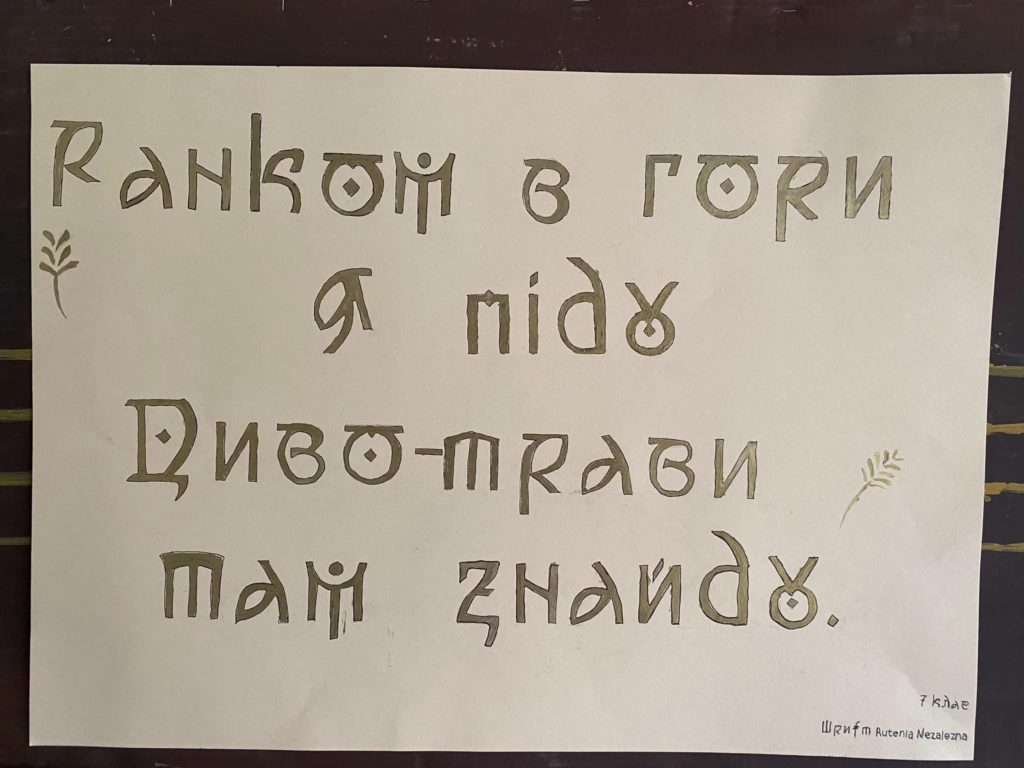 Ранком в гори
я піду
Диво-трави
там знайду.
7 клас
Шрифт Rutenia Nezalezna